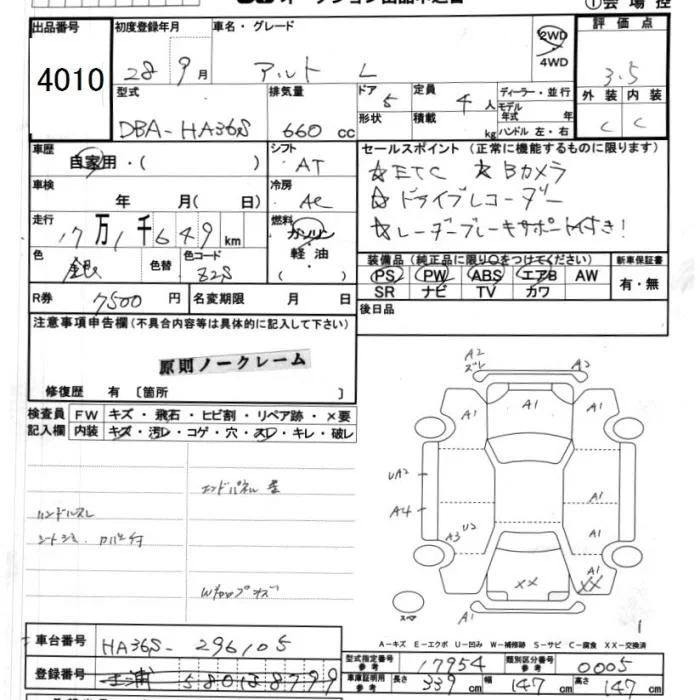 ①会場控
出品番号
4010
初度登録年月
28 9月
車名・グレード
アルト L
2WD
4WD
評価点
3.5
外装 内装
C C
型式
DBA-HA36S
排気量
660 cc
ドア 5
形状
定員 4人
積載 kg
ディーラー・並行
モデル年式 年
ハンドル 左・右
車歴
自家用・( )
シフト
AT
セールスポイント(正常に機能するものに限ります)
☆ETC ☆Bカメラ
☆ドライブレコーダー
☆レーダーブレーキサポート付き!
車検
年 月( 日)
冷房
AC
走行
17万1千649km
燃料
ガソリン
軽油
( )
色
銀
色替
色コード
Z2S
装備品(純正品に限り○をつけてください)
PS PW ABS エアB AW
SR ナビ TV カワ
新車保証書
有・無
R券 7500円
名変期限 月 日
後日品
注意事項申告欄(不具合内容等は具体的に記入して下さい)
原則ノークレーム
修復歴 有〔箇所 〕
検査員記入欄
FW キズ・飛石・ヒビ割・リペア跡・×要
内装 キズ・汚レ・コゲ・穴・スレ・キレ・破レ
ハンドルスレ
エンドパネル
A2
ズレ
A2
A1
A1
A1
UA2
A4
A3 U2
A1
A1
A1
XX
XX
スペア
1
A-キズ E-エクボ U-凹み W-補修跡 S-サビ C-腐食 XX-交換済
車台番号
HA36S-296105
型式指定番号 参考 17954
類別区分番号 参考 0005
登録番号
土浦 580 は 8799
車庫証明用 参考 長さ 339cm 幅 147cm 高さ 147cm